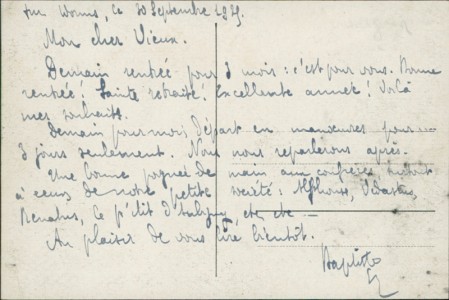 Worms, le 30 Septembre 1929.
Mon cher Vieux.
Demain rentrée pour 3 mois : c'est pour vous. Bonne
rentrée ! Sainte retraite ! Excellente année ! Voilà
mes souhaits.
Demain pour moi, Départ en manœuvres pour
3 jours seulement. Nous nous reparlerons après.
Une bonne poignée de main aux confrères, surtout
à ceux de notre petite société : Alphonse,
le p'tit et, etc —
Au plaisir de vous lire bientôt.
Baptiste